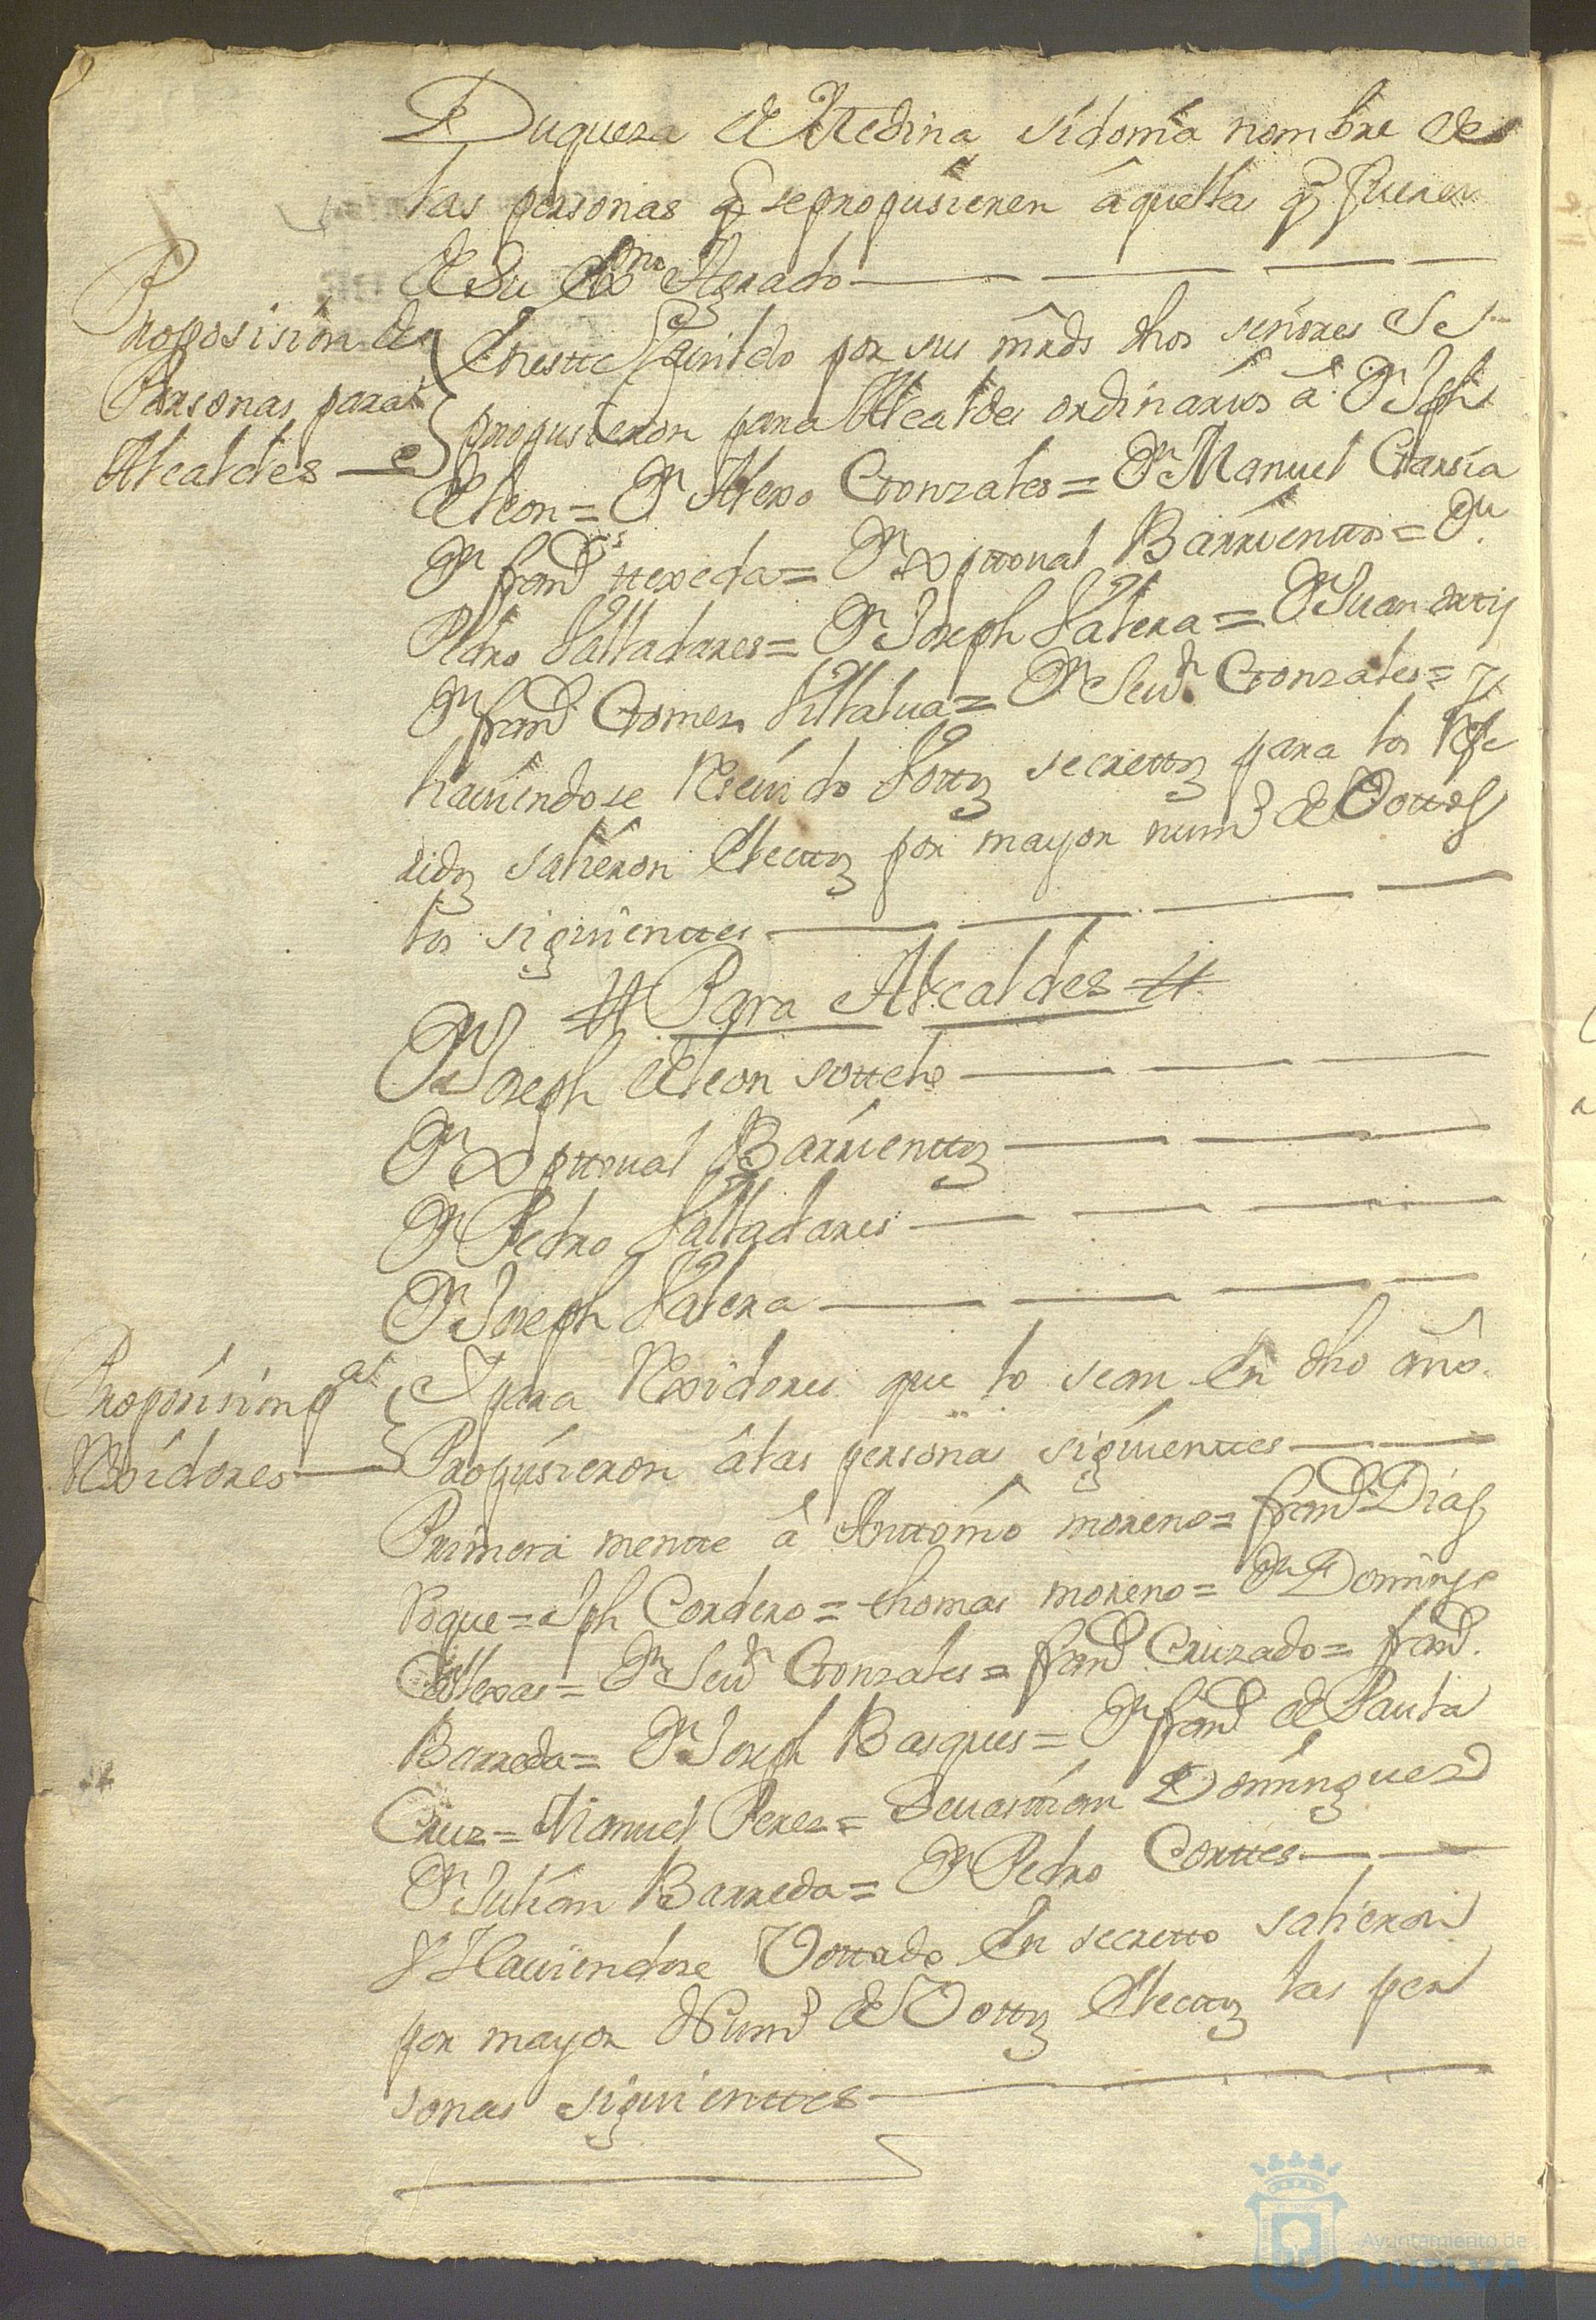 Duquesa de Medina Sidonia nombre de
las personas q̃ se propusieren âquella q̃ fuere
de su Exmo Agrado
Proposision de
Personas para
Alcaldes
En este Cavildo por sus mrds dhos señores Se
propusieron para Alcaldes ordinarios â Dn Jph
de Leon = Dn Alexo Gonzales = Dn Manuel Garsia
Dn franco texeda = Dn Xpttoual Barrienttos = Dn
Pedro Valladares = Dn Joseph Valera = Dn Juan ortiz
Dn franco Gomez Villalua = Dn Seun Gonzales = y
hauiendose Reseuido Vottos secrettos para los Refe
ridos salieron Electtos por mayor numo de Vottos
los siguienttes
# Para Alcaldes #
Dn Joseph de Leon sottelo
Dn Xpttoual Barrienttos
Dn Pedro Valladares
Dn Joseph Valera
Proposision pa
Rexidores
Y para Rexidores que lo sean En dho año
Propusieron âlas personas siguienttes
Primera mentte â Anttonio moreno = franco Dias
Roque = Jph Cordero = thomas moreno = Dn Domingo
Casttexas = Dn Seun Gonzales = franco Cruzado = franco
Barreda = Dn Joseph Basques = Dn franco de Paula
Cruz = Manuel Perez = Seuasttian Dominguez
Dn Julian Barreda = Dn Pedro Corttes
Y Hauiendose Vottado En secretto salieron
por mayor Numo de Vottos Electtos las per
sonas siguienttes
Ayuntamiento de
HUELVA